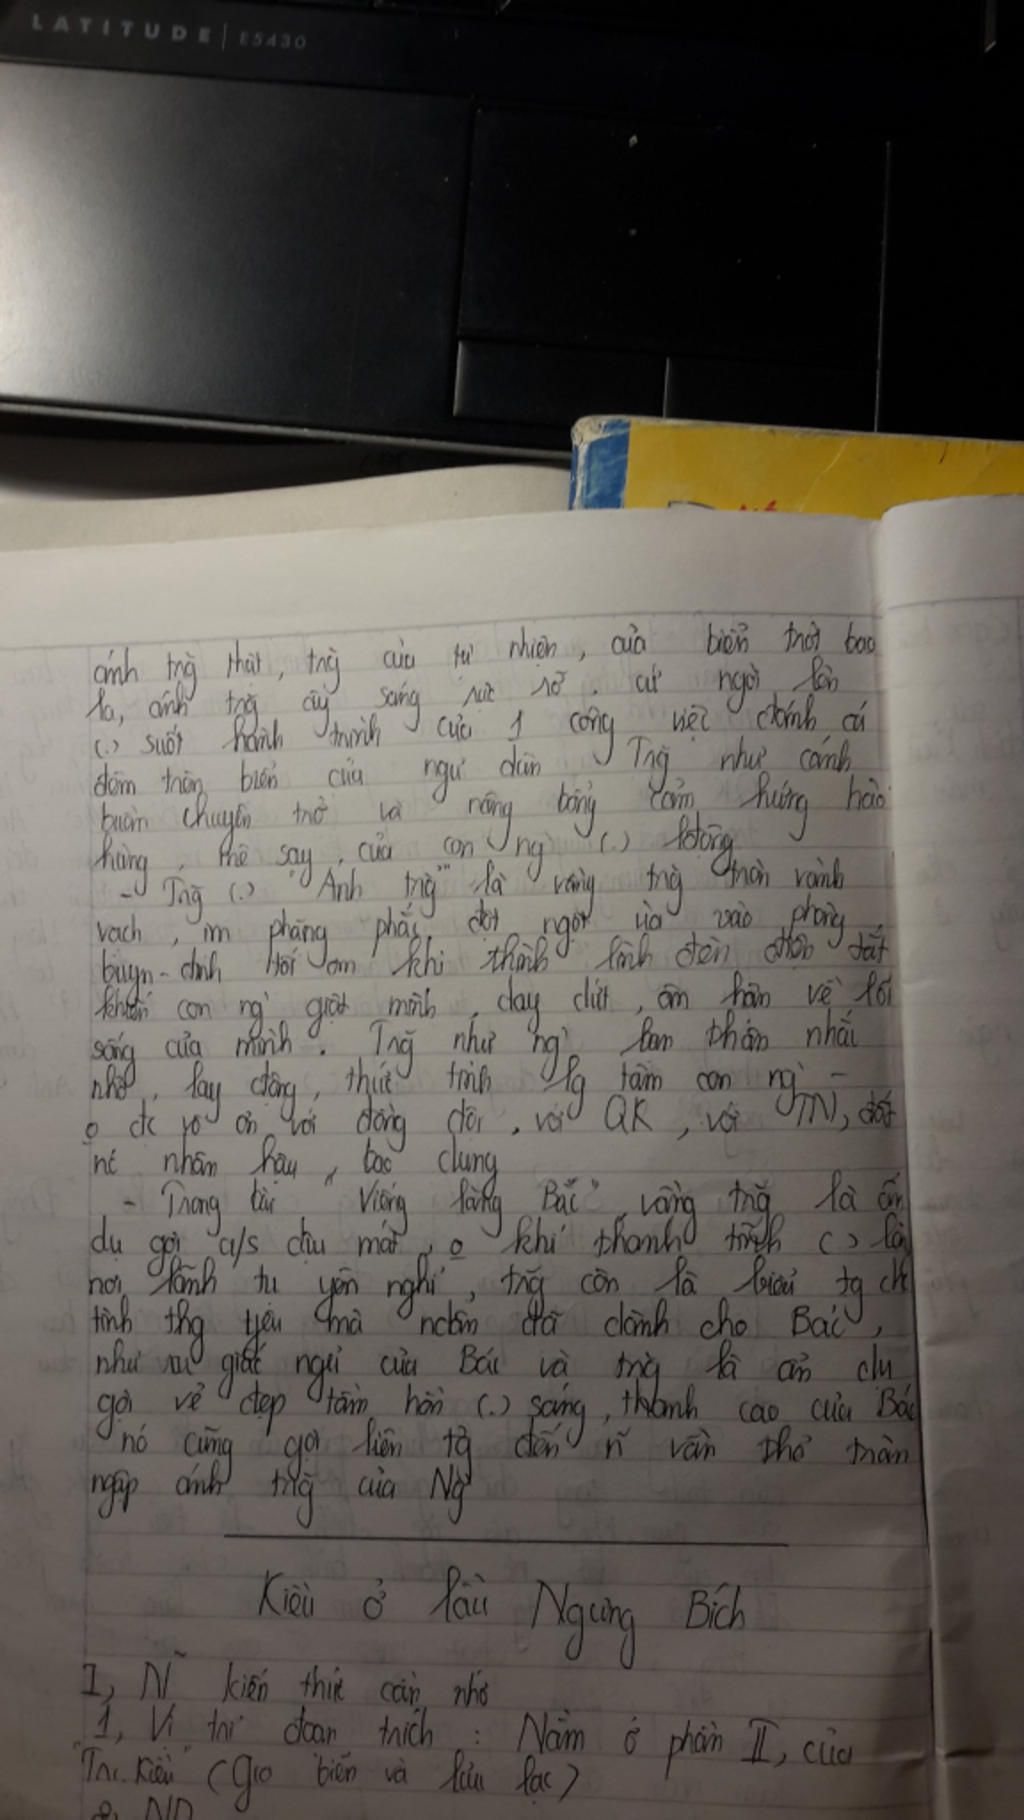 LATITUDE | E5430
ánh trg thật, trg của tự nhiên, của biển trời bao
la, ánh trg ấy sáng rực rỡ, cứ ngời lên
(.) suốt hành trình của 1 công việc đánh cá
đêm trên biển của ngư dân Trg như cánh
buồm chuyên trở và nâng bổng cảm hứng hào
hùng, mê say, của con ng' (.) lđộng
- Trg (.) "Ánh trg" là vầng trg tròn vành
vạch, im phăng phắc, đột ngột ùa vào phòng
buyn-đinh tối om khi thình lình đèn điện tắt
khiến con ng' giật mình, day dứt, ân hận về lối
sống của mình. Trg như ng' bạn thân nhắc
nhở, lay động, thức tỉnh lg tâm con ng' -
o đc vô ơn với đồng đội, với QK, với TN, đất
nc nhân hậu, bao dung
- Trong bài "Viếng lăng Bác" vầng trg là ẩn
dụ gợi a/s dịu mát, o khí thanh tĩnh (.) lăng
nơi lãnh tụ yên nghỉ, trg còn là biểu tg cho
tình thg yêu mà ndân đã dành cho Bác,
như ru giấc ngủ của Bác và trg là ẩn dụ
gợi vẻ đẹp tâm hồn (.) sáng, thanh cao của Bác
nó cũng gợi liên tg đến n~ vần thơ tràn
ngập ánh trg của Ng
Kiều ở lầu Ngưng Bích
I, N~ kiến thức cần nhớ
1, Vị trí đoạn trích : Nằm ở phần II, của
"Tr. Kiều" (Gia biến và lưu lạc)
2, ND